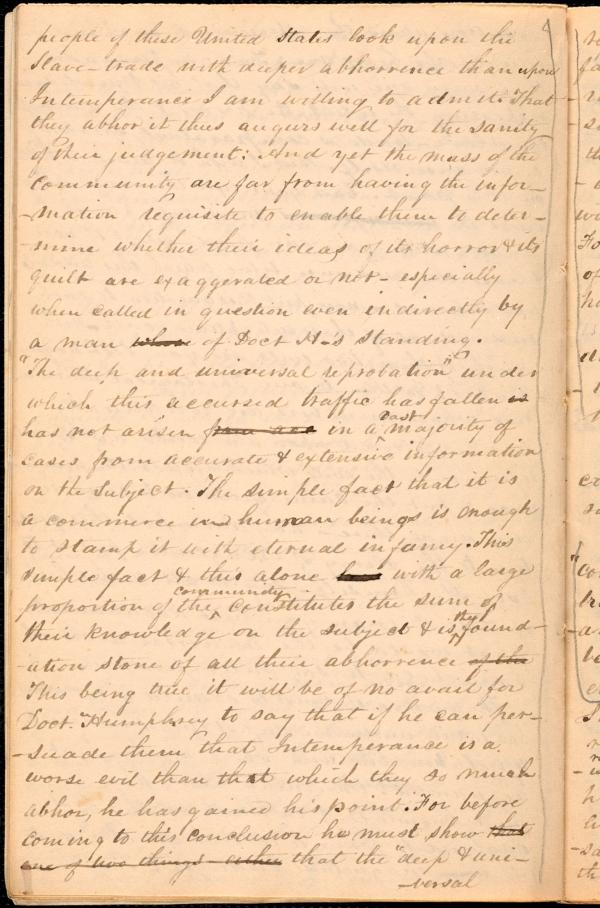 people of these United States look upon the
Slave-trade with deeper abhorrence than upon
Intemperance I am willing to admit. That
they abhor it thus augurs well for the sanity
of their judgement: And yet the mass of the
community are far from having the infor-
-mation requisite to enable them to deter-
-mine whether their ideas of its horror & its
guilt are exaggerated or not - especially
when called in question even indirectly by
a man whose of Doct H-'s standing.
"The deep and universal reprobation" under
which this accursed traffic has fallen is
has not arisen from acc in a vast majority of
cases from accurate & extensive information
on the subject. The simple fact that it is
a commerce in human beings is enough
to stamp it with eternal infamy. This
simple fact & this alone with a large
proportion of the community constitutes the sum of
their knowledge on the subject & is the found-
-ation stone of all their abhorrence of the
This being true it will be of no avail for
Doct. Humphrey to say that if he can per-
-suade them that Intemperance is a
worse evil than that which they so much
abhor, he has gained his point. For before
coming to this conclusion he must show that
one of two things - either that the "deep & uni-
-versal